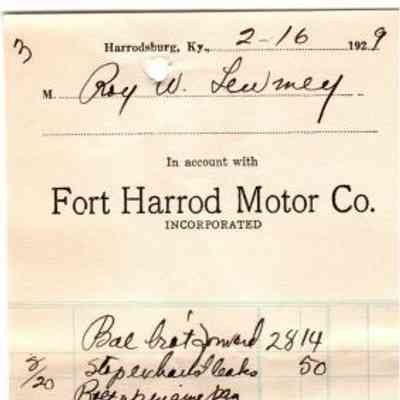 3
Harrodsburg, Ky., 2-16 1929
M. Roy W.
In account with
Fort Harrod Motor Co.
INCORPORATED
Bal bro't forward 2814
8/20 Stop exhaust leaks 50